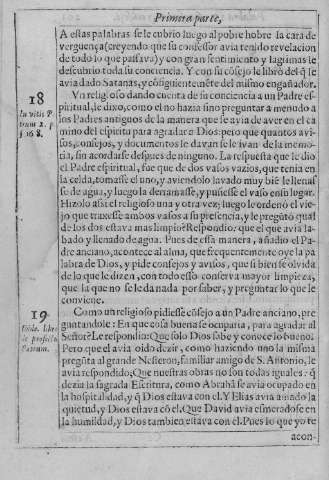 Primera parte,
A estas palabras se le cubrio luego al pobre hobre la cara de
verguença (creyendo que su confessor avia tenido revelacion
de todo lo que passava) y con gran sentimiento y lagrimas le
descubrio toda su conciencia. Y con su cõsejo le librò del q̃ le
avia dado Satanas, y cõsiguientemẽte del mismo engañador.
18
In vitis P.
trum 2. p.
§ 168.
Vn religioso dando cuenta de su conciencia a un Padre es-
piritual, le dixo, como el no hazia sino preguntar a menudo a
los Padres antiguos de la manera que se avia de aver en el ca
mino del espiritu para agradar a Dios: pero que quantos avi-
sos, consejos, y documentos le davan se le ivan de la memo-
ria, sin acordarse despues de ninguno. La respuesta que le dio
el Padre espiritual, fue que de dos vasos vazios, que tenia en
la celda, tomasse el uno, y aviendolo lavado muy biẽ le llenas
se de agua, y luego la derramasse, y pusiesse el vaso en su lugar.
Hizolo assi el religioso una y otra vez; luego le ordenò el vie-
jo que traxesse ambos vasos a su presencia, y le pregũtò qual
de los dos estava mas limpio? Respondiò: que el que avia la-
bado y llenado de agua. Pues de essa manera, añadio el Pa-
dre anciano, acontece al alma, que frequentemente oye la pa
labra de Dios, y pide consejos y avisos, que si bien se olvida
de lo que le dizen, con todo esso conserva mayor limpieza,
que la que no se le da nada por saber, y preguntar lo que le
conviene.
19
Ibidẽ. libro
de profectu
Patrum.
Como un religioso pidiesse cõsejo a un Padre anciano, pre
guntandole: En que cosa buena se ocuparia, para agradar al
Señor? Le respondio: Que solo Dios sabe y conoce lo bueno.
Pero que el avia oido dezir, como haziendo uno la misma
pregũta al grande Nesteron, familiar amigo de S. Antonio, le
avia respondido; Que nuestras obras no son todas iguales: q̃
dezia la sagrada Escritura, como Abrahã se avia ocupado en
la hospitalidad, y q̃ Dios estava con el. Y Elias avia amado la
quietud, y Dios estava cõ el. Que David avia esmeradose en
la humildad, y Dios tambien estava con el. Pues lo que yo te
acon-